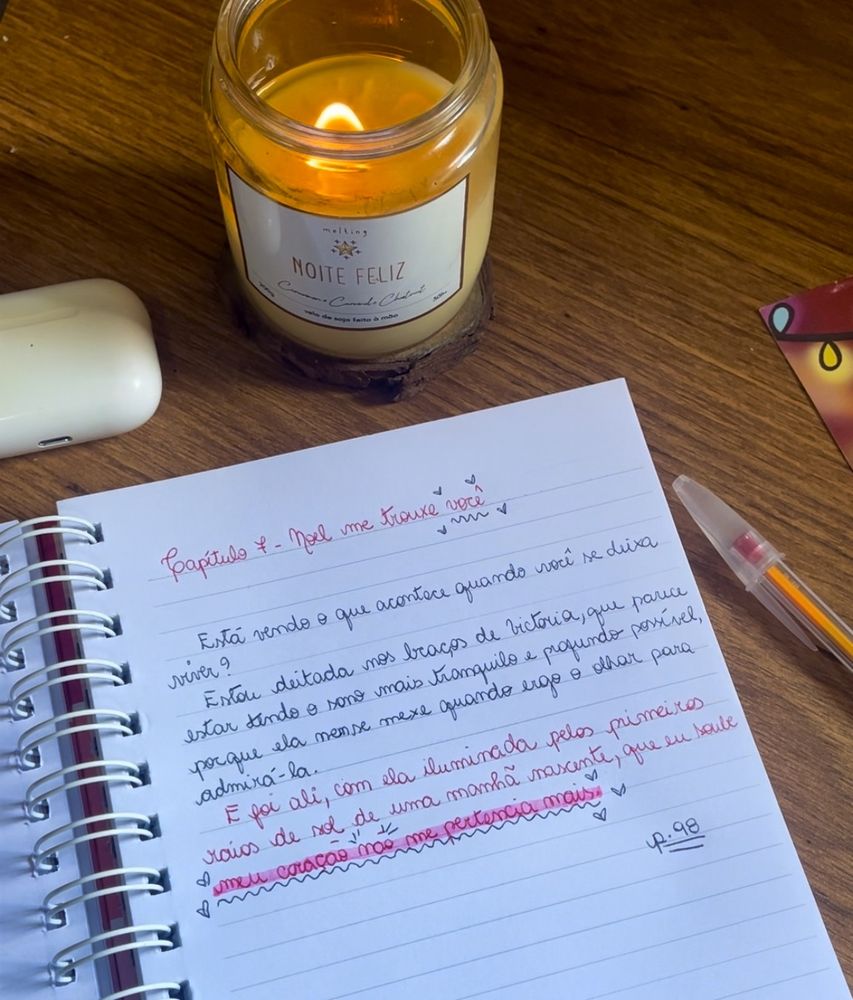 melting
NOITE FELIZ
vela de soja feita à mão
Capítulo 7 - Noel me trouxe você
Está vendo o que acontece quando você se deixa
viver?
Estou deitada nos braços de Victoria, que parece
estar tendo o sono mais tranquilo e profundo possível,
porque ela nem se mexe quando ergo o olhar para
admirá-la.
E foi ali, com ela iluminada pelos primeiros
raios de sol de uma manhã nascente, que eu soube
meu coração não me pertencia mais.
p. 98